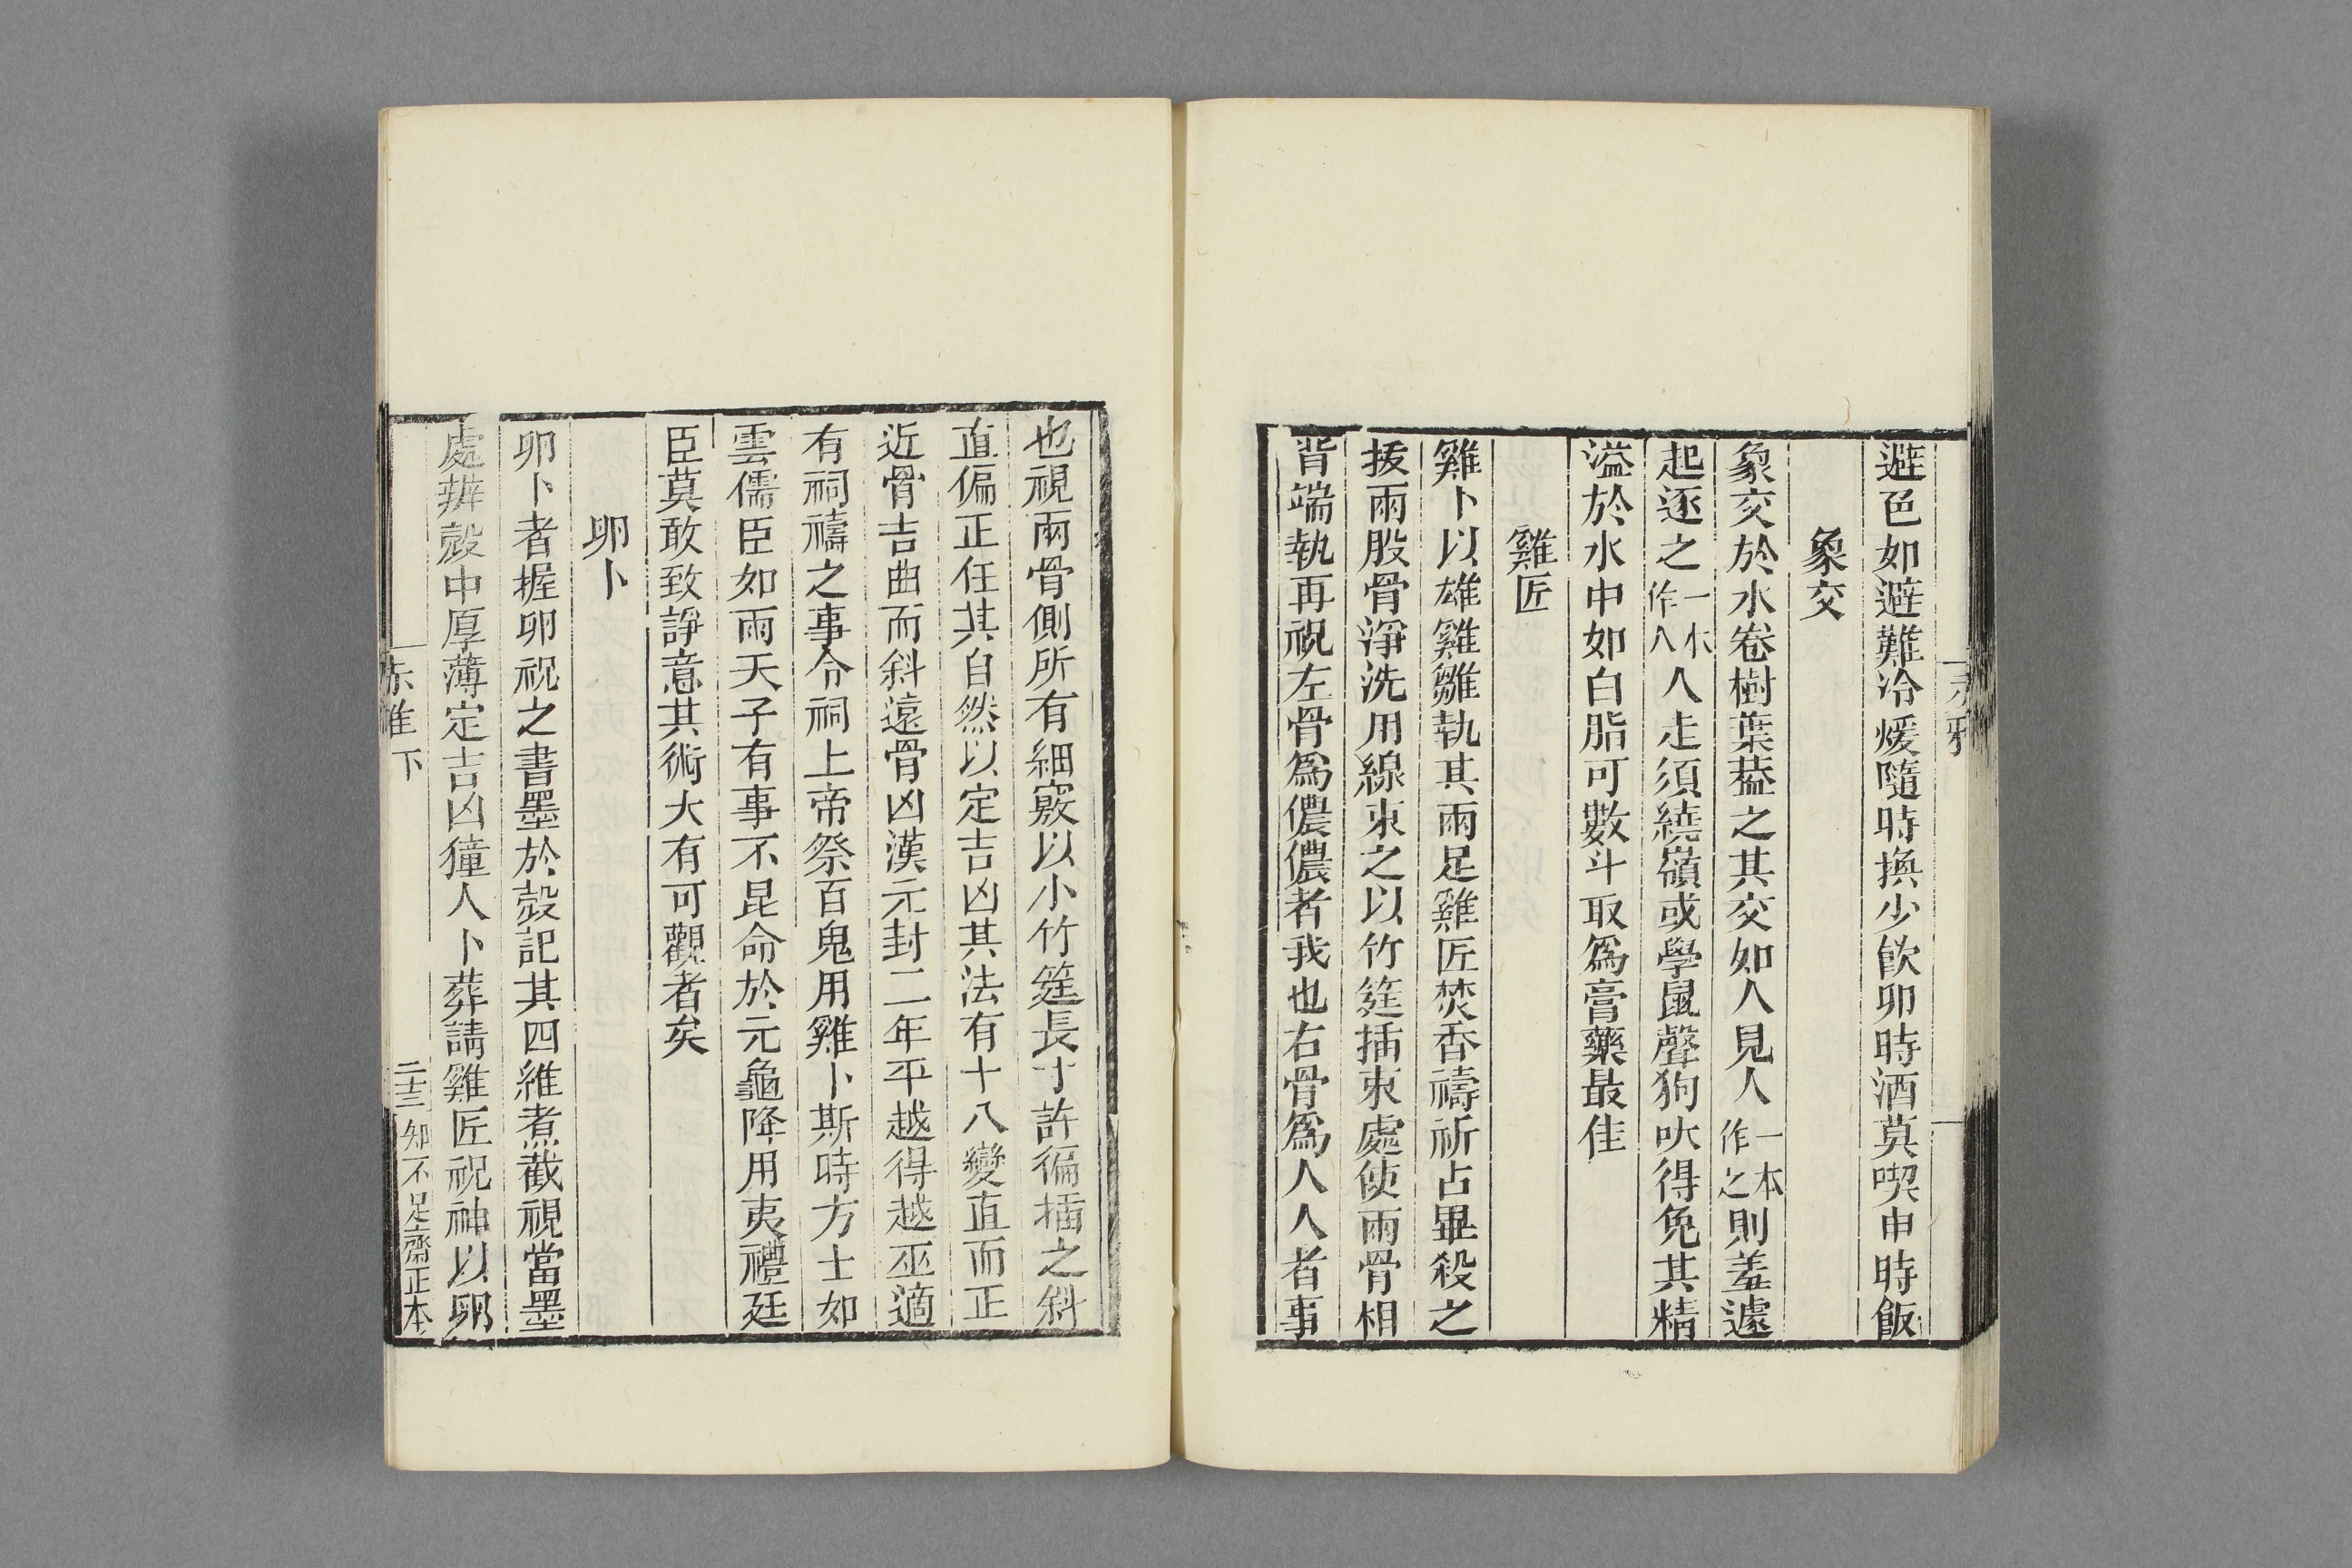 避色如避難冷煖隨時換少飮卯時酒莫喫申時飯
象交
象交於水卷樹葉葢之其交如人見人一本作之則羞遽
起逐之一本作入人走須繞嶺或學鼠聲狗吠得免其精
溢於水中如白脂可數斗取爲膏藥最佳
雞匠
雞卜以雄雞雛執其兩足雞匠焚香禱祈占畢殺之
拔兩股骨淨洗用線束之以竹筳插束處使兩骨相
背端執再祝左骨爲儂儂者我也右骨爲人人者事
也視兩骨側所有細竅以小竹筳長寸許徧插之斜
直偏正任其自然以定吉凶其法有十八變直而正
近骨吉曲而斜遠骨凶漢元封二年平越得越巫適
有祠禱之事令祠上帝祭百鬼用雞卜斯時方士如
雲儒臣如雨天子有事不昆命於元龜降用夷禮廷
臣莫敢致諍意其術大有可觀者矣
卵卜
卵卜者握卵祝之書墨於殼記其四維煮截視當墨
處辨殼中厚薄定吉凶獞人卜葬請雞匠祝神以卵
赤雅下
二十三
知不足齋正本